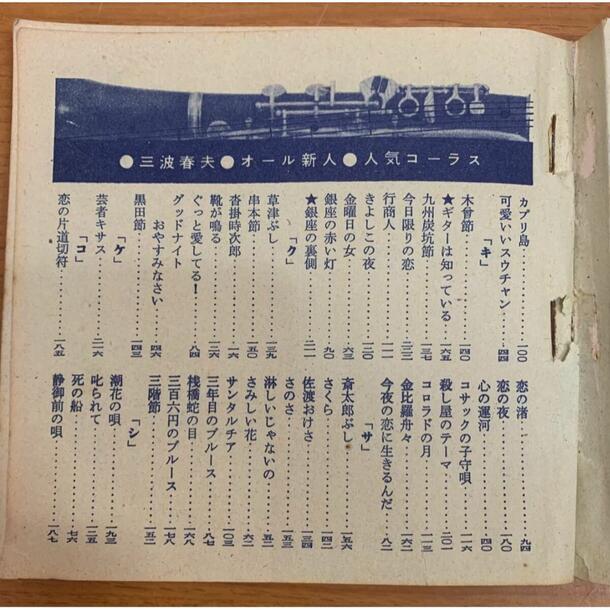 ●三波春夫●オール新人●人気コーラス
カプリ島…………一〇〇
可愛いいスウチャン………四四
「キ」
木曾節…………一四〇
★ギターは知っている………六五
九州炭坑節…………一三七
今日限りの恋…………二三三
行商人…………一二一
きよしこの夜…………一三〇
金曜日の女…………六三
銀座の赤い灯…………九〇
★銀座の裏側…………二一一
「ク」
草津ぶし…………一三九
串本節…………一五〇
沓掛時次郎…………一三六
靴が鳴る…………一二六
ぐっと愛してる！…………八四
グッドナイト
おやすみなさい…………四六
黒田節…………一四三
「ケ」
芸者キサス…………二一六
「コ」
恋の片道切符…………一八五
恋の渚…………九四
恋の夜…………一八〇
心の運河…………四〇
コサックの子守唄…………一一六
殺し屋のテーマ…………二〇一
コロラドの月…………一一三
金比羅舟々…………一六二
今夜の恋に生きるんだ………八二
「サ」
斎太郎ぶし…………一五六
さくら…………四二
佐渡おけさ…………一三四
さのさ…………一五三
淋しいじゃないの…………五二
さみしい花…………六二
サンタルチア…………一〇三
三年目のブルース…………八七
桟橋蛇の目…………一六八
三百六円のブルース…………一七八
三階節…………一五二
「シ」
潮花の唄…………一九三
叱られて…………一二五
死の船…………七六
静御前の唄…………一八七